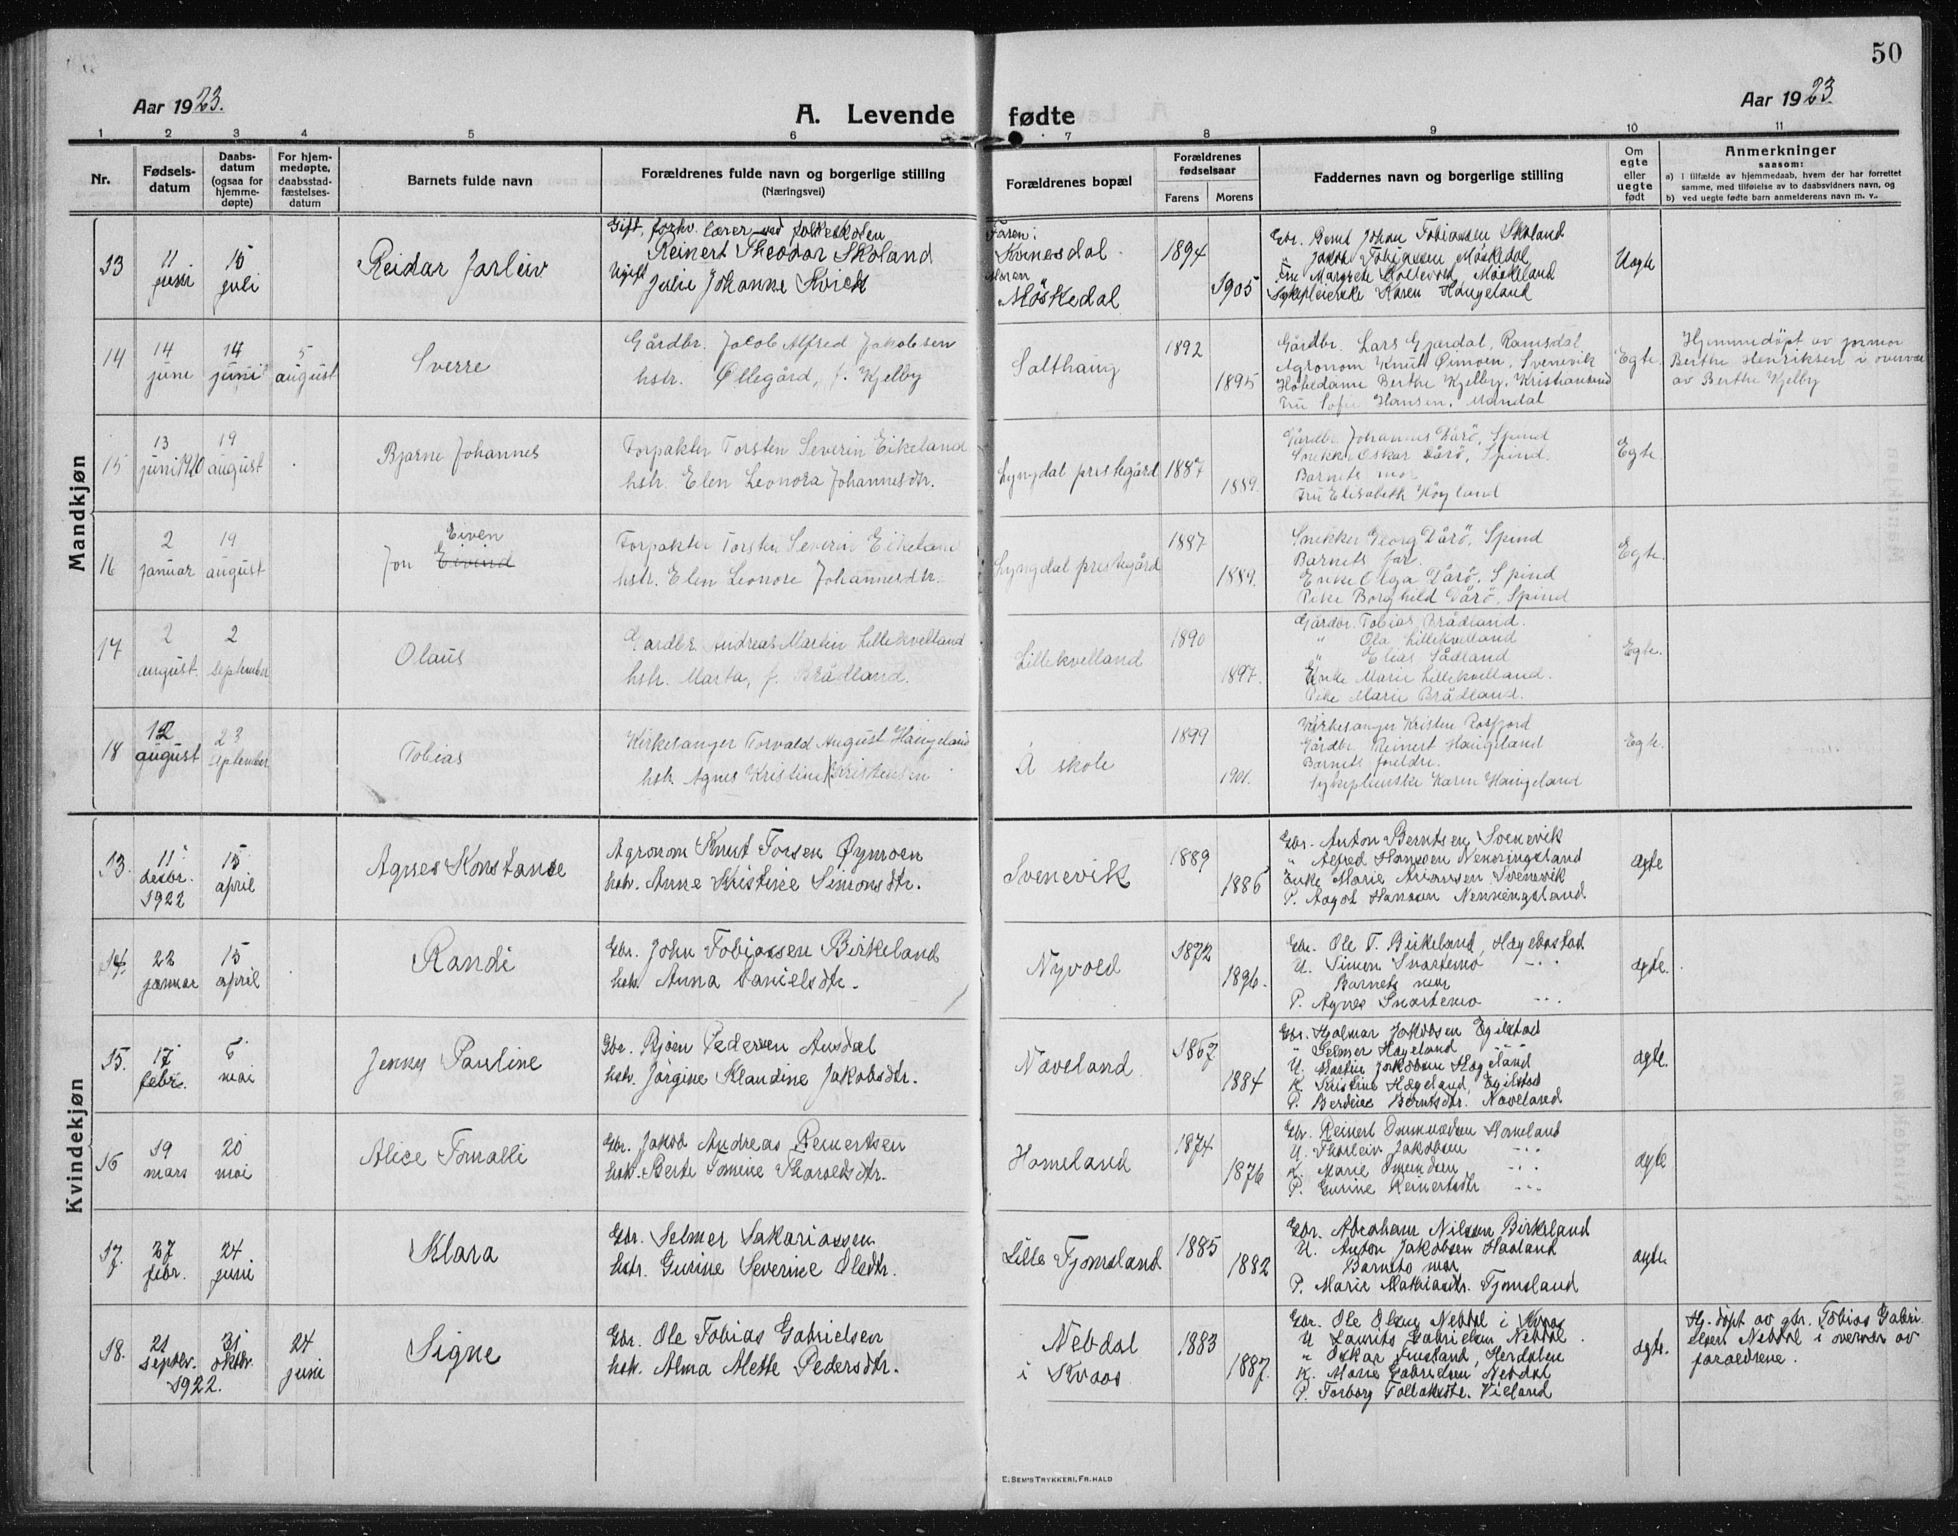 50
Aar 1923.
A. Levende fødte
Aar 1923.
1 2 3 4 5 6 7 8 9 10 11
Nr.
Fødsels-
datum
Daabs-
datum
(ogsaa for
hjemme-
døpte)
For hjem-
medøpte,
daabsstad-
fæstelses-
datum
Barnets fulde navn
Forældrenes fulde navn og borgerlige stilling
(Næringsvei)
Forældrenes bopæl
Forældrenes
fødselsaar
Farens Morens
Faddernes navn og borgerlige stilling
Om
egte
eller
uegte
født
Anmerkninger
saasom:
a) I tilfælde av hjemmedaab, hvem der har forrettet
samme, med tilføielse av to daabsvidners navn, og
b) ved uegte fødte barn anmelderens navn m. v..
Mandkjøn
13
11 juni
15 juli
Reidar Jarleiv
Gift, forhv. lærer ved folkeskolen
Reinert Theodor Skoland
Ugift Julie Johanne Kvick
Faren:
Kvinesdal
Moren
Møskedal
1894
1905
Gbr. Bernt Johan Tobiassen Skoland
" Jakob Tobiassen Møskedal
Fru Margrete Kollevold, Møskeland
Sykepleierske Karen Haugeland
Uegte
14
14 juni
14 juni
5 august
Sverre
Gårdbr. Jacob Alfred Jakobsen
hstr. Øllegård, f. Kjelby
Salthaug
1892
1895
Gårdbr. Lars Gjerdal, Ramsdal
Agronom Knut Øimoen, Svenevik
Hoteldame Berthe Kjelby, Kristiansand
Fru Sofie Hansen, Mandal
Egte.
Hjemmedøpt av jormor
Berthe Henriksen i overvær
av Berthe Kjelby
15
13 juni 1920
19 august
Bjarne Johannes
Forpakter Torsten Severin Eikeland
hstr. Elen Leonora Johannesdtr.
Lyngdal prestegård
1887
1889.
Gårdbr. Johannes Dårø, Spind
Snekker Oskar Dårø, Spind.
Barnets mor
Fru Elisabeth Høyland
Egte.
16
2 januar
19 august
Eiven
Jon Eivind
Forpakter Torsten Severin Eikeland
hstr. Elen Leonore Johannesdtr.
Lyngdal prestegård
1887
1889.
Snekker Georg Dårø, Spind
Barnets far.
Enke Olga Dårø, Spind
Pike Borghild Dårø, Spind
Egte.
17
2 august.
2 september
Olaus
Gardbr. Andreas Martin Lillekvelland
hstr. Marta, f. Brådland.
Lillekvelland
1890
1897.
Gårdbr. Tobias Brådland.
" Ola Lillekvelland
" Elias Sådland
Enke Marie Lillekvelland.
Pike Marie Brådland.
Egte.
18
12 august
23 september
Tobias
Kirkesanger Torvald August Haugeland
hstr. Agnes Kristine Kristensen
Å skole
1899
1901.
Kirkesanger Kristen Rosfjord
Gårdbr. Reinert Haugeland
Barnets foreldre.
Sykepleierske Karen Haugeland
Egte.
Kvindekjøn
13.
11 desbr. 1922
15 april
Agnes Konstanse
Agronom Knut Torsen Øymoen
hstr. Anne Kristine Simonsdtr.
Svenevik
1889
1886
Gbr. Anton Berntsen Svenevik
" Alfred Hanssen Nenningsland
Enke Marie Ariansen Svenevik
P. Aagot Hanssen Nenningsland
ægte
14.
22 januar
15 april
Randi
Gbr. John Tobiassen Birkeland
hstr. Anna Danielsdtr.
Nyvold
1872
1896.
Gbr. Ole T. Birkeland, Hægebostad
U. Simon Snartemo -..-
Barnets mor
P. Agnes Snartemo -..-
ægte.
15.
17 febr.
6 mai
Jenny Pauline
Gbr. Bjørn Pedersen Ausdal
hstr. Jørgine Klaudine Jakobsdtr.
Næveland
1867
1884
Gbr. Hjalmar Jakobsen Egilstad
" Selmer Hægeland -..-
U. Martin Jakobsen Hægeland
K. Kristine Hægeland, Egilstad
P. Berdine Berntsdtr. Næveland
ægte.
16
19 mars
20 mai
Alice Tomalli
Gbr. Jakob Andreas Reinertsen
hstr. Berte Tomine Tharaldsdtr.
Homeland
1874
1876
Gbr. Reinert Ommundsen Homeland
U. Thorleiv Jakobsen -..-
K. Marie Omundsen -..-
P. Gurine Reinertsdtr -..-
ægte
17.
27 febr.
24 juni
Klara
Gbr. Selmer Sakariassen
hstr. Gurine Severine Olsdtr.
Lille Tjomsland
1885
1882
Gbr. Abraham Nilsen Birkeland
U. Anton Jakobsen Haaland
Barnets mor
P. Marie Mathiasdtr. Tjomsland
ægte.
18.
21 septbr. 1922.
31 oktbr.
24 juni
Signe
Gbr. Ole Tobias Gabrielsen
hstr. Alma Mette Pedersdtr.
Nebdal
i Kvaas
1883
1887.
Gbr. Ole Olsen Nebdal i Kvaas
U Laurits Gabrielsen Nebdal
" Oskar Jusland, Herdalen
K. Marie Gabrielsen Nebdal
P. Torborg Tollaksdtr. Vieland
ægte.
Hj. døpt av gbr. Tobias Gabri
elsen Nebdal i overvær av
foraeldrene.
E. SEM'S TRYKKERI, FR. HALD